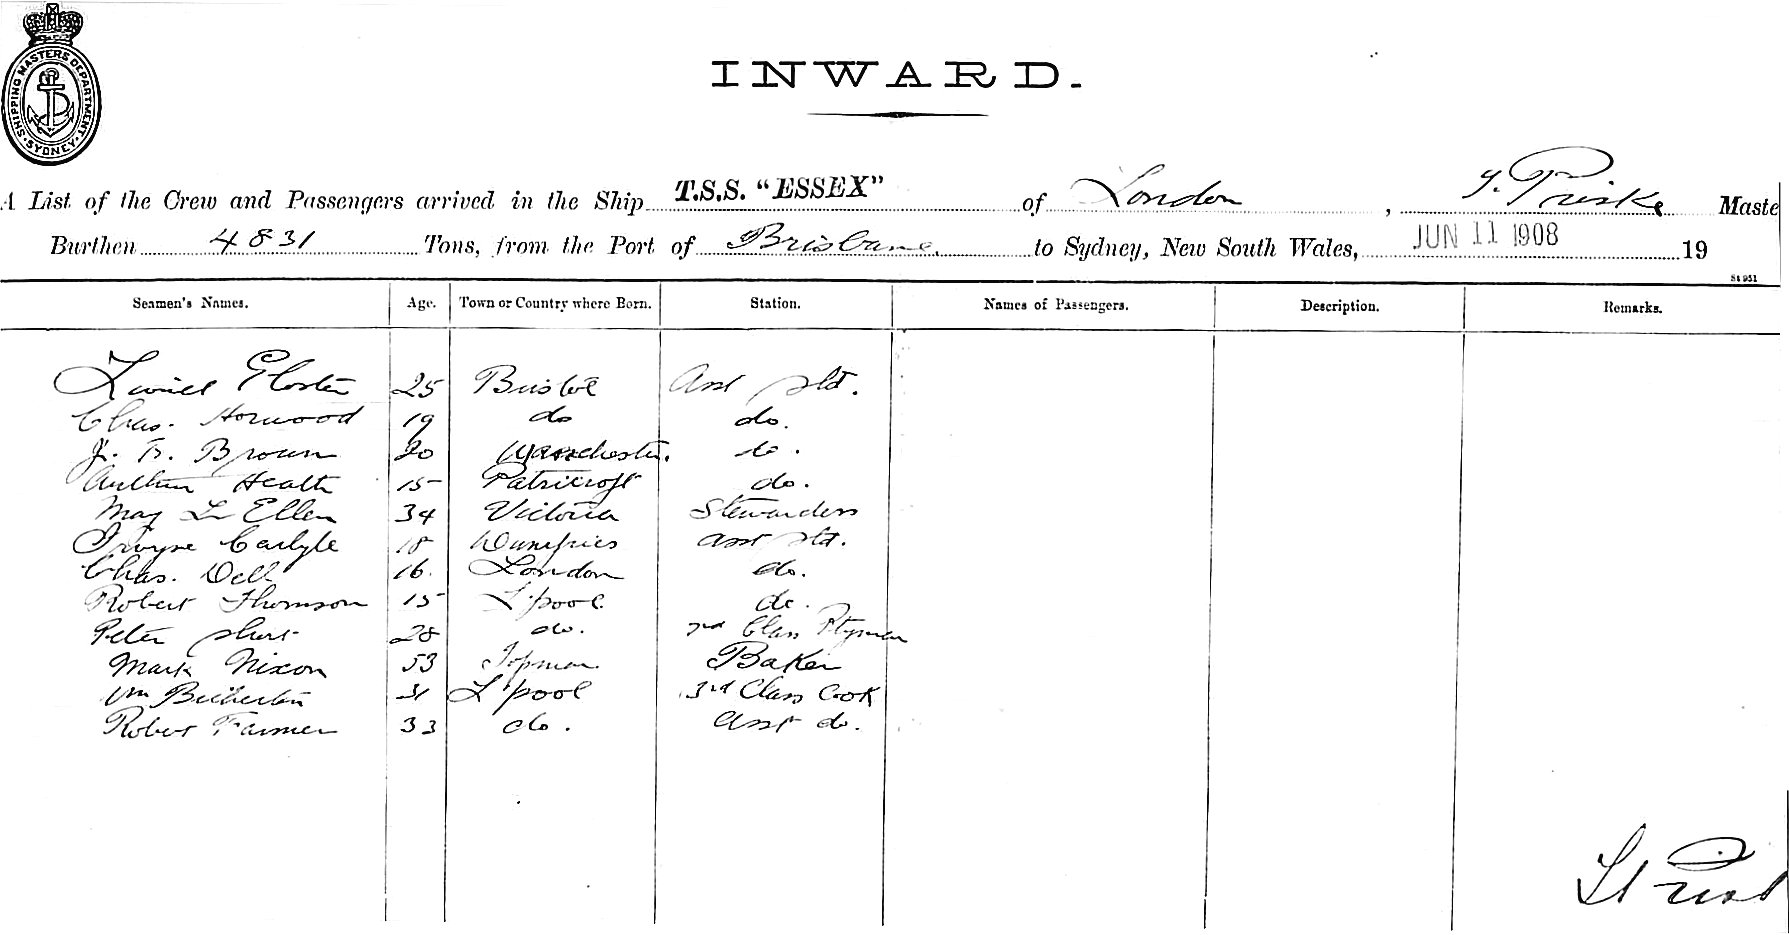 SHIPPING MASTERS DEPARTMENT. SYDNEY
INWARD.
A List of the Crew and Passengers arrived in the Ship T.S.S. "ESSEX" of London, Priske Maste
Burthen 4831 Tons, from the Port of Brisbane. to Sydney, New South Wales, JUN 11 1908 19
St 951
Seamen's Names. Age. Town or Country where Born. Station. Names of Passengers. Description. Remarks.
25 Bristol Asst std.
Chas. Horwood 19 do do.
Brown 20 Manchester. do.
Arthur Heath 15 Patricroft do.
May L Ellen 34 Victoria Stewardess
Carlyle 18 Dumfries asst std.
Chas. Dell 16. London do.
Robert Thomson 15 L'pool do.
Peter 28 do. 3rd Class
Mark Nixon 53 Baker
Wm 31 L'pool 3rd Class Cook
Robert Farmer 33 do. asst do.